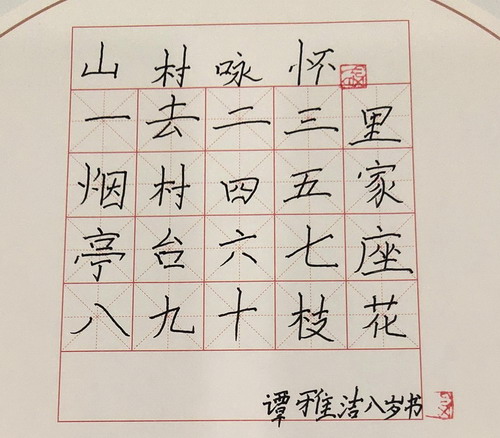 山村咏怀
一去二三里
烟村四五家
亭台六七座
八九十枝花
谭雅洁八岁书